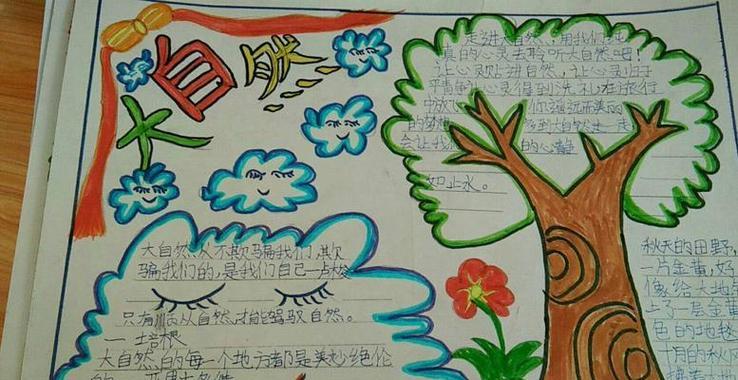 大自然
走进大自然,用我们纯
真的心灵去聆听大自然吧!
让心灵贴进自然,让心灵归于
心灵得到洗礼,在旅行
中放
你遥远而美丽
的梦想
到大自然走一走
会让我
的心
如止水。
大自然从不欺骗我们,欺
骗我们的,是我们自己一点
只有服从自然,才能驾驭自然。
一培根
大自然的每一个地方都是美妙绝伦
的
秋天的田野,
一片金黄,好
像给大地
上了一层金黄
色的地毯
十月的秋风